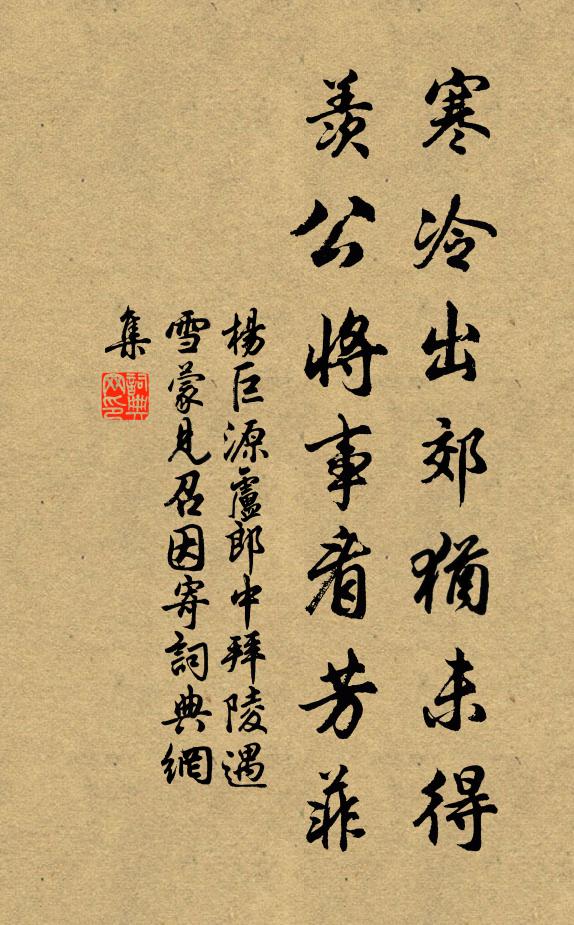 寒冷出郊猶未得
羨公將事看芳菲
楊巨源盧郎中拜陵遇
雪蒙見召因寄詞典網
集
詞典網印